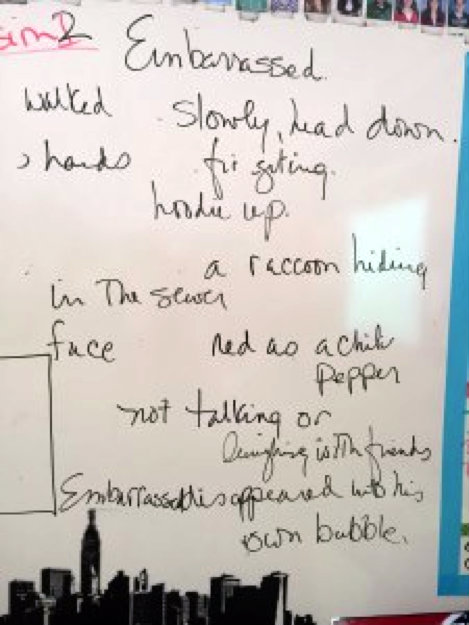 sion 2 Embarrassed.
walked slowly, head down.
, hands figiting.
hoodie up.
a raccoon hiding
in The sewer
face red as a chili
Pepper
not talking or
laughing with friends
Embarrassed disappeared into his
own bubble.